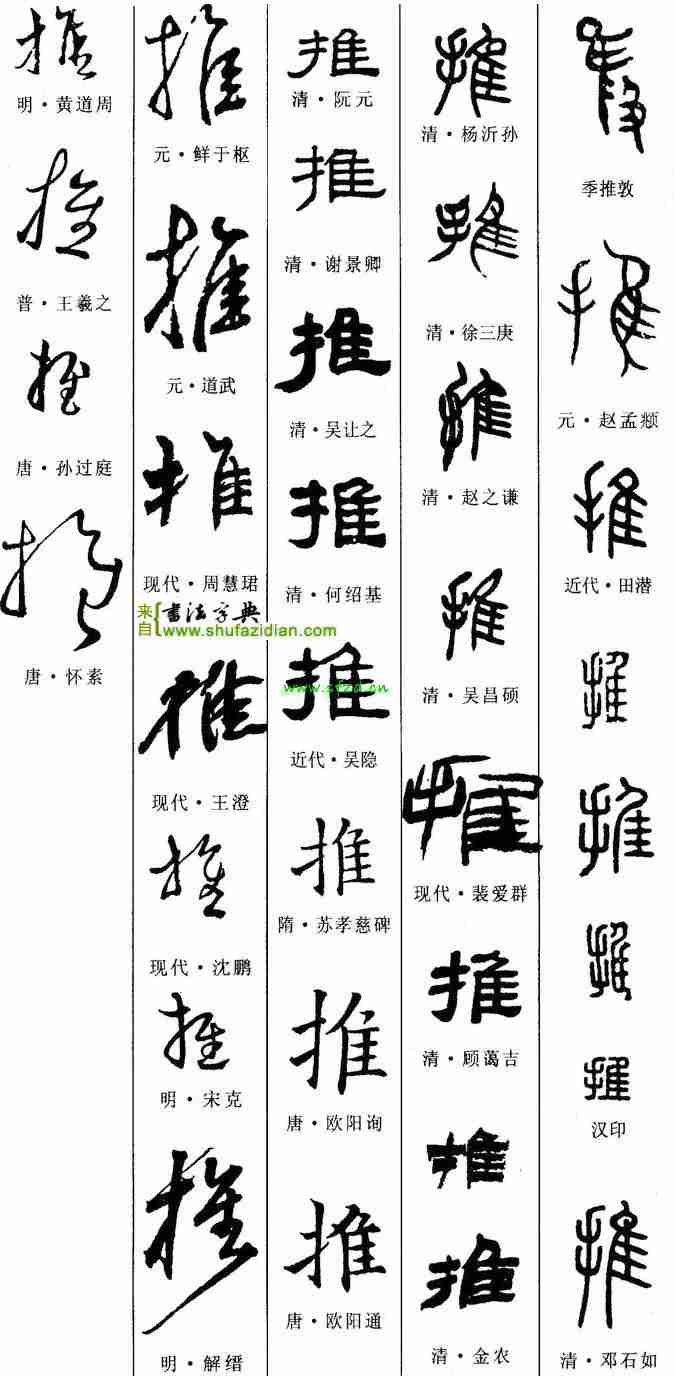 推
季推敦
推
元·赵孟𫖯
推
近代·田潜
推
推
推
推
汉印
推
清·邓石如
推
清·杨沂孙
推
清·徐三庚
推
清·赵之谦
推
清·吴昌硕
推
现代·裴爱群
推
清·顾蔼吉
推
推
清·金农
推
清·阮元
推
清·谢景卿
推
清·吴让之
推
清·何绍基
推
www.sfzd.cn
近代·吴隐
推
隋·苏孝慈碑
推
唐·欧阳询
推
唐·欧阳通
推
元·鲜于枢
推
元·道武
推
现代·周慧珺
来自 书法字典
www.shufazidian.com
推
现代·王澄
推
现代·沈鹏
推
明·宋克
推
明·解缙
推
明·黄道周
推
普·王羲之
推
唐·孙过庭
推
唐·怀素